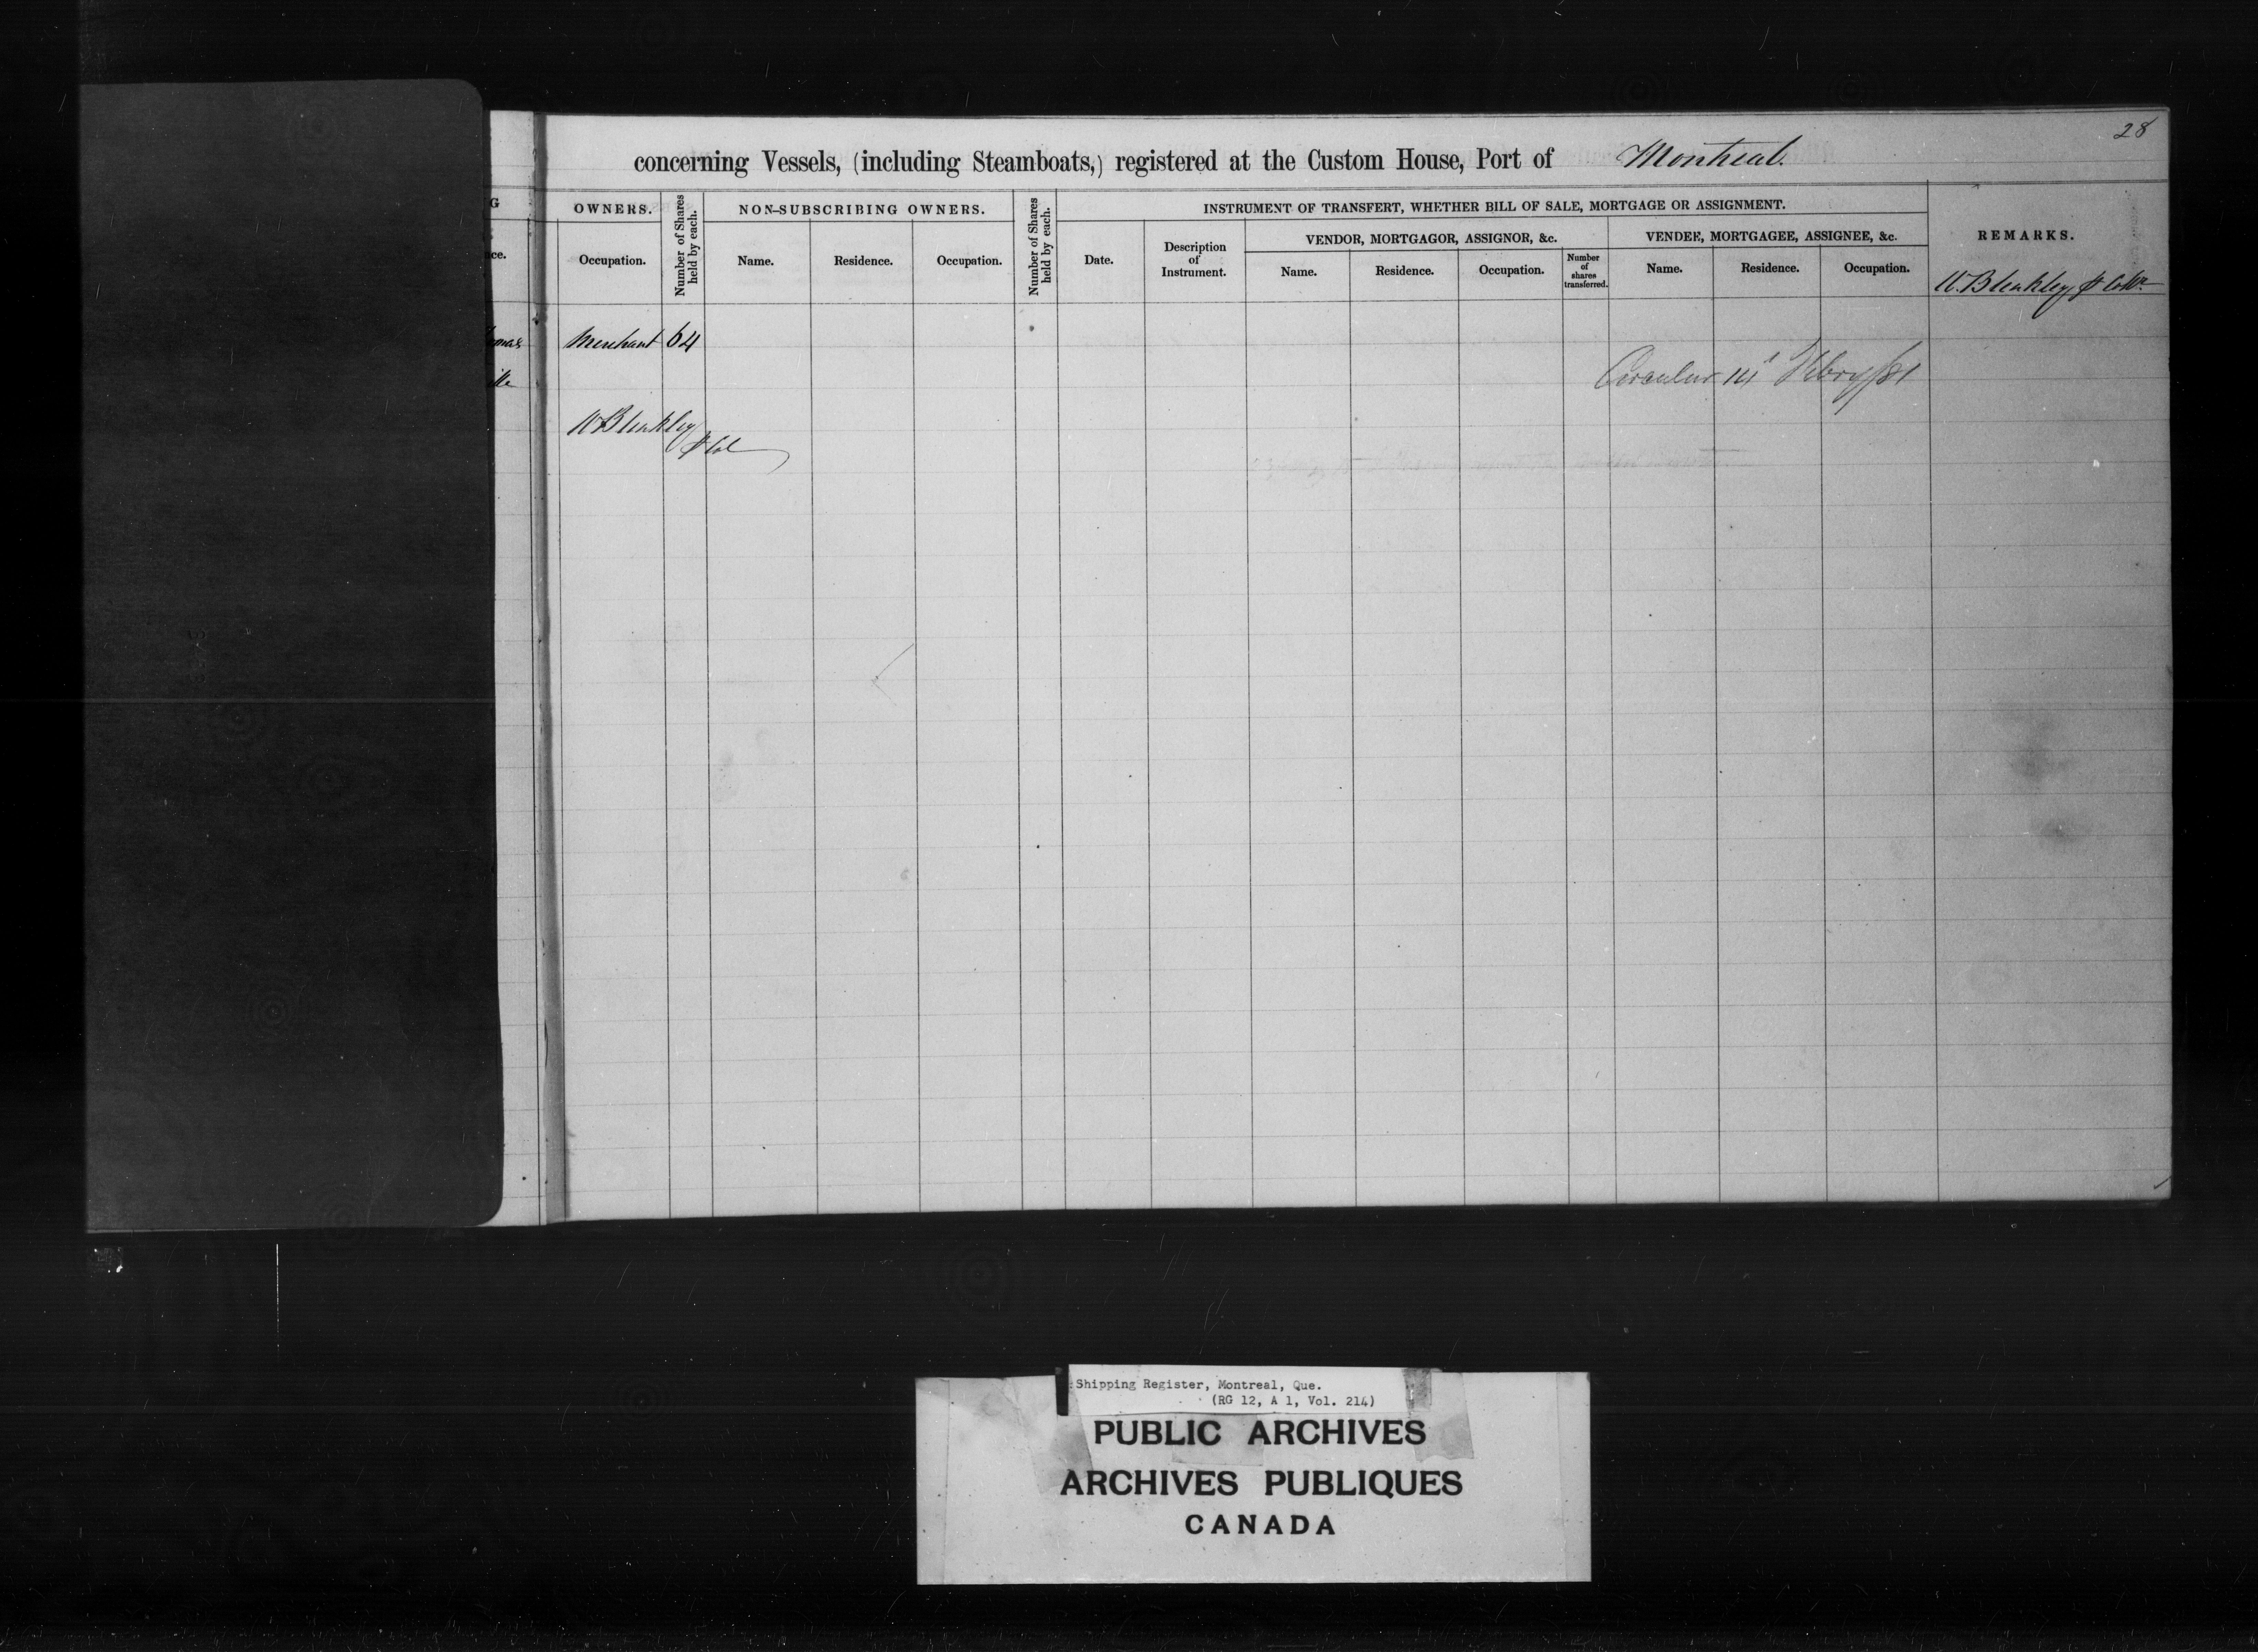 28
concerning Vessels, (including Steamboats,) registered at the Custom House, Port of Montreal.
G
OWNERS.
Number of Shares held by each.
NON-SUBSCRIBING OWNERS.
Number of Shares held by each.
INSTRUMENT OF TRANSFERT, WHETHER BILL OF SALE, MORTGAGE OR ASSIGNMENT.
REMARKS.
VENDOR, MORTGAGOR, ASSIGNOR, &c.
VENDEE, MORTGAGEE, ASSIGNEE, &c.
ce.
Occupation.
Name.
Residence.
Occupation.
Date.
Description
of
Instrument.
Name.
Residence.
Occupation.
Number
of
shares
transferred.
Name.
Residence.
Occupation.
W. Bleakley
Merchant 64
Circular 14
W Bleakley
Shipping Register, Montreal, Que.
(RG 12, A 1, Vol. 214)
PUBLIC ARCHIVES
ARCHIVES PUBLIQUES
CANADA